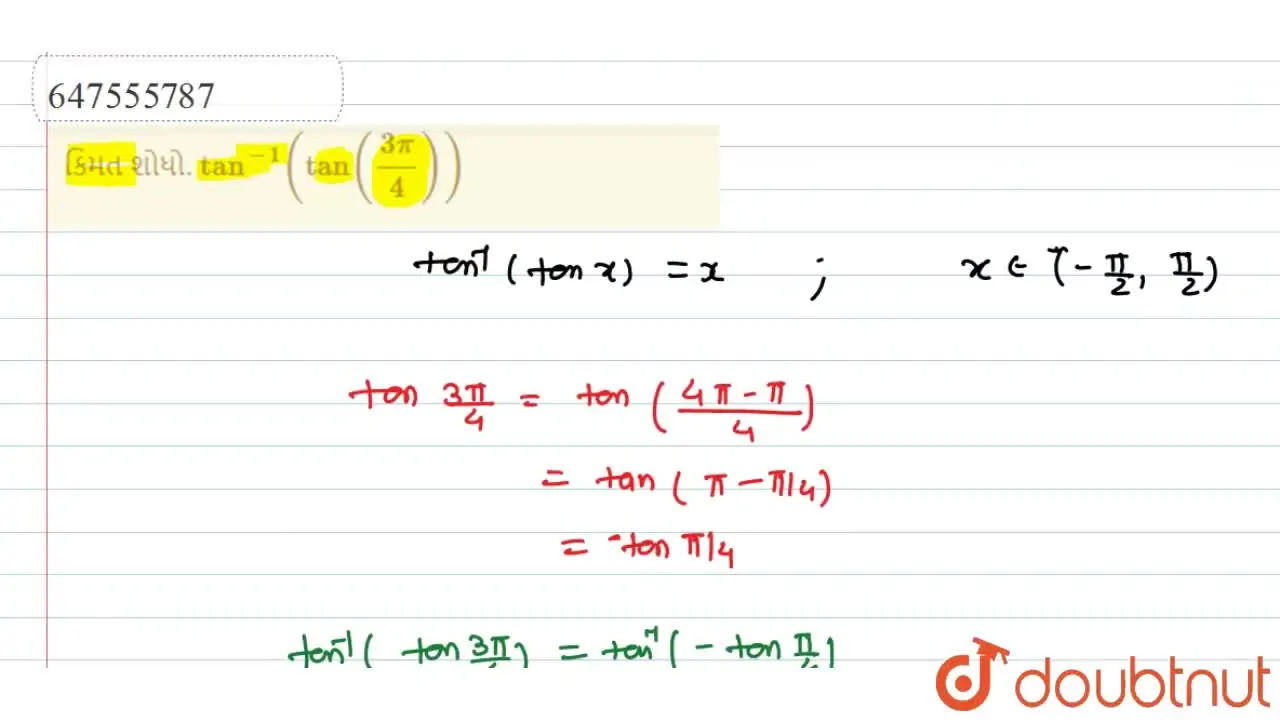 647555787
કિંમત શોધો. tan⁻¹(tan(3π/4))
tan⁻¹ (tan x) = x ; x ∈ (-π/2, π/2)
tan 3π/4 = tan (4π-π/4)
= tan (π-π/4)
= -tan π/4
tan⁻¹( tan 3π/4) = tan⁻¹(- tan π/4)
doubtnut